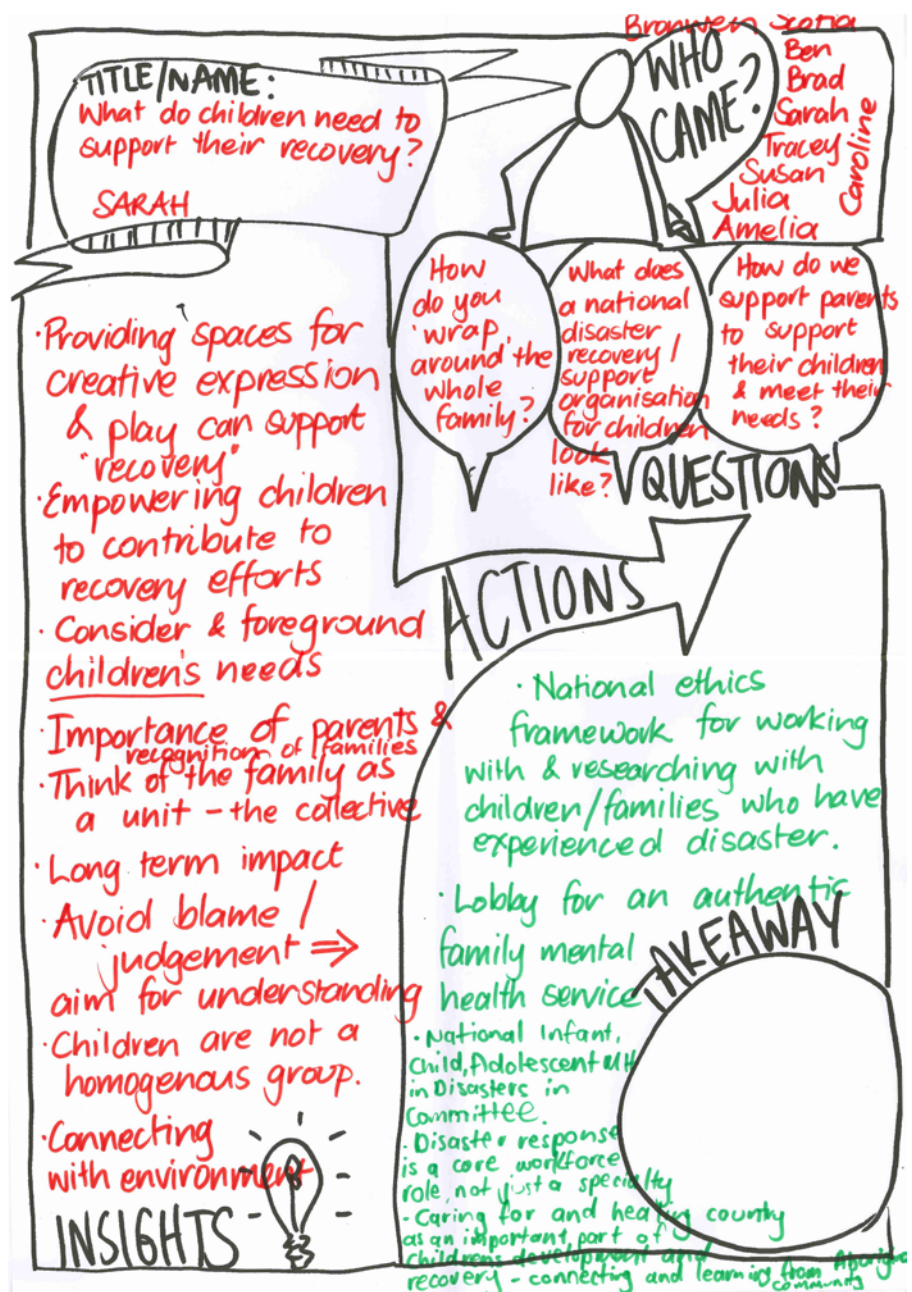 TITLE/NAME:
What do children need to
support their recovery?
SARAH
WHO
CAME?
Bronwen Scotia
Ben
Brad
Sarah
Tracey
Susan
Julia
Amelia
Caroline
How
do you
'wrap
around' the
whole
family?
What does
a national
disaster
recovery /
support
organisation
for children
look
like?
How do we
support parents
to support
their children
& meet their
needs?
QUESTIONS
· Providing spaces for
creative expression
& play can support
"recovery"
· Empowering children
to contribute to
recovery efforts
· Consider & foreground
children's needs
· Importance of parents &
recognition of families
· Think of the family as
a unit - the collective
· Long term impact
· Avoid blame /
judgement ⇒
aim for understanding
· Children are not a
homogenous group.
· Connecting
with environment
INSIGHTS
ACTIONS
· National ethics
framework for working
with & researching with
children/families who have
experienced disaster.
· Lobby for an authentic
family mental
health service
· National Infant,
Child, Adolescent MH
in Disasters in
Committee.
· Disaster response
is a core workforce
role, not just a specialty
- Caring for and healing country
as an important part of
childrens development and
recovery - connecting and learning from
community
TAKEAWAY